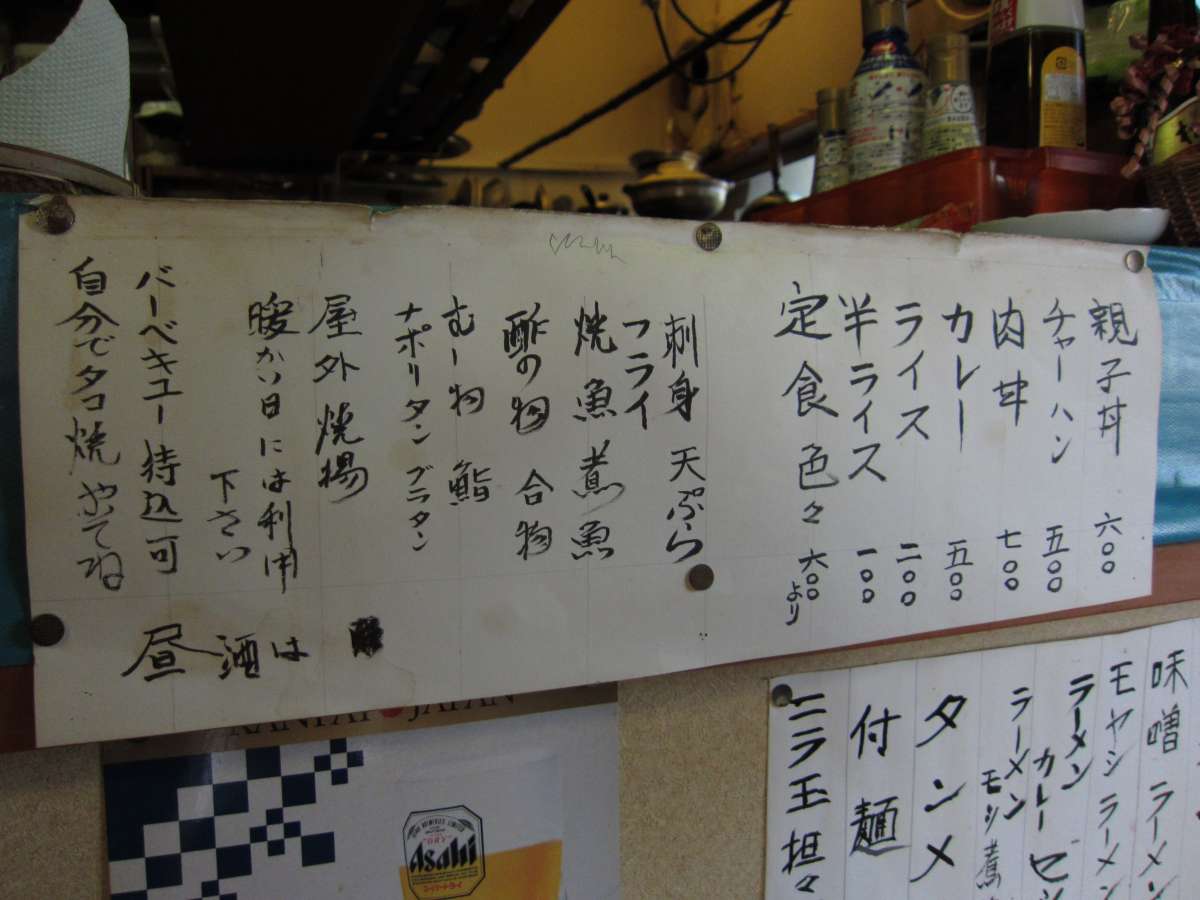 親子丼 六〇〇
チャーハン 五〇〇
肉丼 七〇〇
カレー 五〇〇
ライス 二〇〇
半ライス 一〇〇
定食色々 六〇〇より
刺身 天ぷら
フライ
焼魚 煮魚
酢の物 合物
むし物 鮨
ナポリタン ブニタン
屋外焼場
暖かい日には利用
下さい
バーベキュー持込可
自分でタコ焼やてね
昼酒は
味噌ラーメン
モヤシラーメン
ラーメン
カレー
ラーメン
タンメ
付麺
ニラ玉担々
KANPAI JAPAN
Asahi
スーパードライ